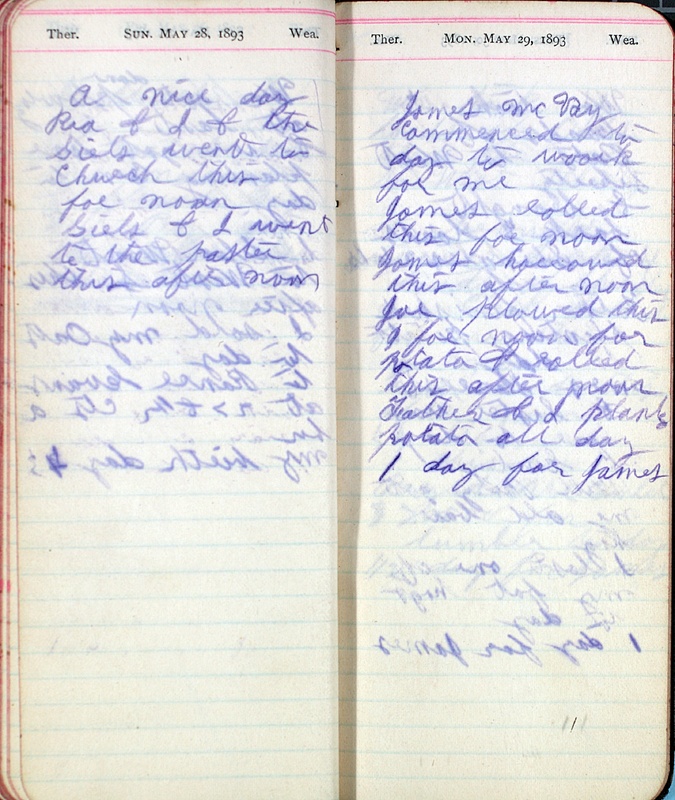 Ther. SUN. MAY 28, 1893 Wea.
A nice day
Rea & I & the
Siels went to
Church this
foe noon
Siels & I went
to the paster
this after noon
Ther. MON. MAY 29, 1893 Wea.
James Mc
Commenced to
day to woock
for me
James rolled
this foe noon
James harrowed
this after noon
Joe plowed this
foe noon for
potata & rolled
this after noon
Father & I plant
potata all day
1 day for James